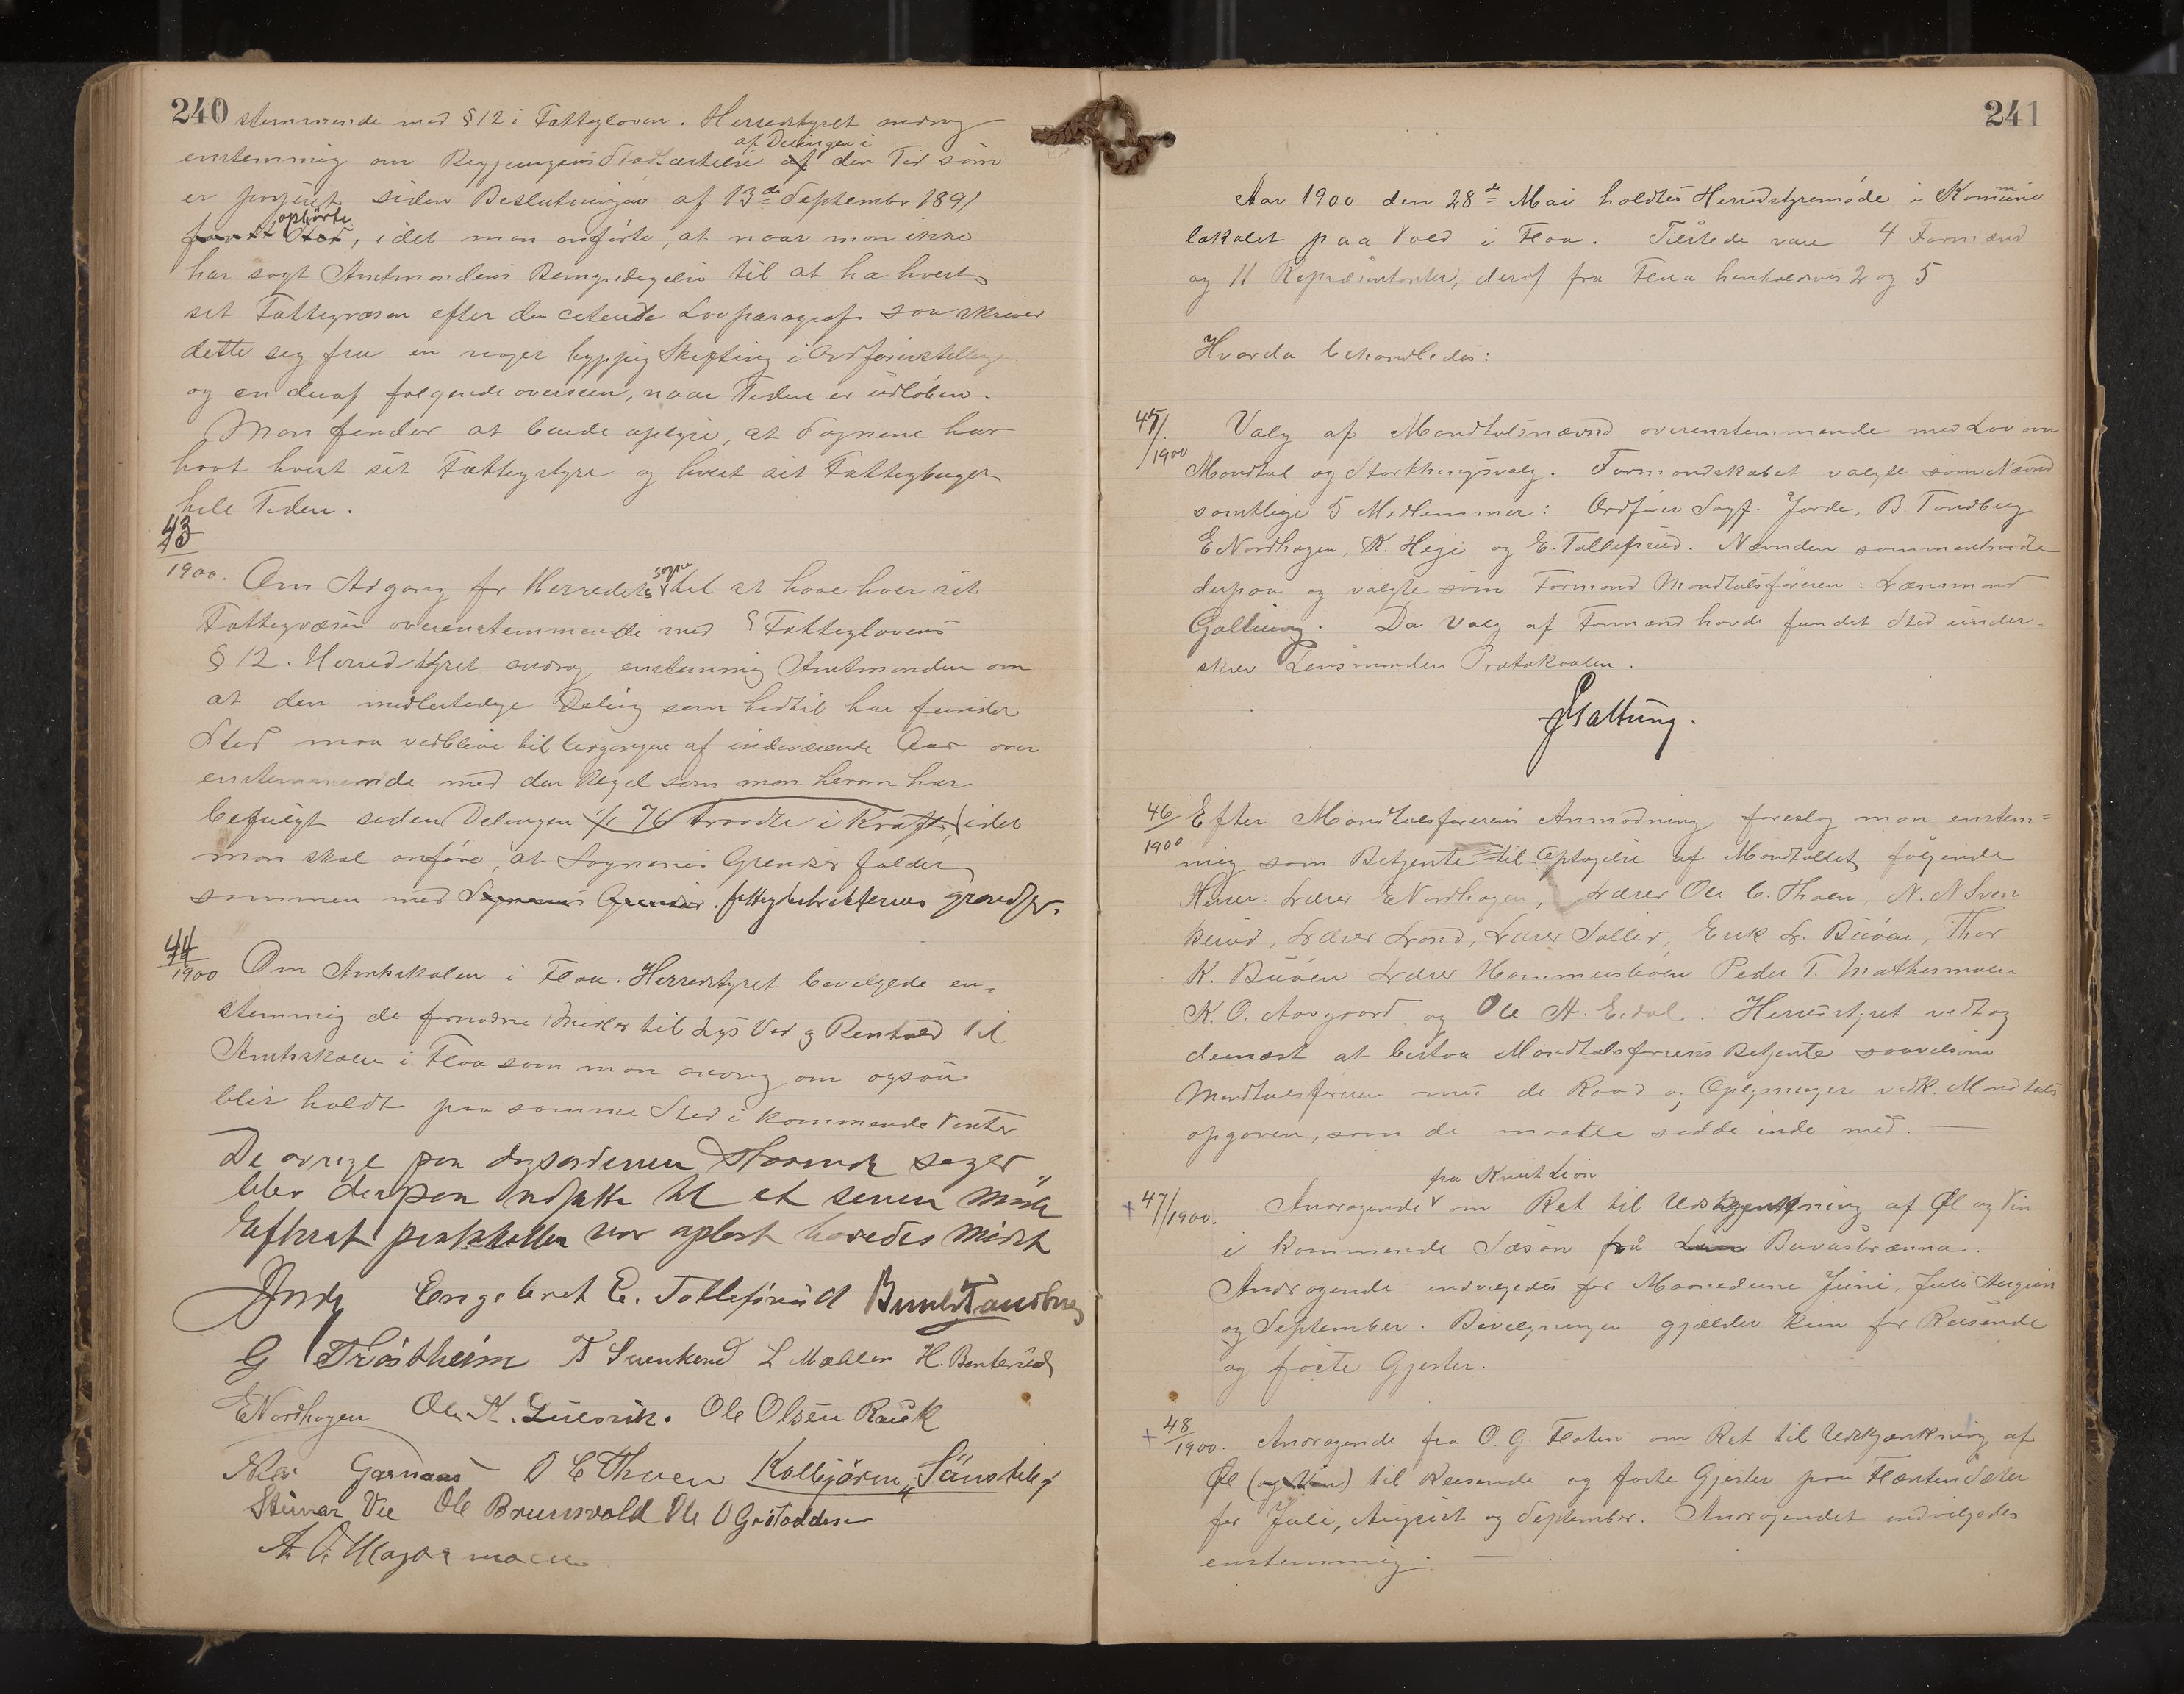 240
stemmende med § 12 i Fattigloven. Herredstyret androg
af Delingen i
enstemmig om Regjeringens Stadfæstelse af den Tid som
er siden Beslutningen af 13de September 1891
ophørte
Sted, idet man anførte, at naar man ikke
har søgt Amtmandens Bemyndigelse til at ha hvert
sit Fattigvæsen efter den citerede Lovparagraf saa skriver
dette sig fra en noget hyppig Skifting i Ordførerstillingen
og en deraf følgende overseen, naar Tiden er udløben.
Man finder at burde oplyse, at Sognene har
havt hvert sit Fattigstyre og hvert sit Fattigbuget
hele Tiden.
43
1900. Om Adgang for Herredets sogne til at have hver sit
Fattigvæsen overenstemmende med Fattiglovens
§ 12. Herredstyret androg enstemmig Amtmanden om
at den midlertidige Deling som hidtil har fundet
Sted maa vedblive til Udgangen af indeværende Aar over
enstemmende med den Regel som man herom har
befulgt siden Delingen 1/1 76 traadte i Kraft, idet
man skal anføre, at Sognenes Grendser falder
sammen med Sognenes Grendser. fattigdistrikternes grændser.
44
1900 Om Amtskolen i Flaa. Herredstyret bevilgede en-
stemmig de fornødne Midler til Lys Ved og Renhold til
Amtskolen i Flaa som man androg om ogsaa
blir holdt paa samme Sted i kommende Vinter
De øvrige paa dagsordenen staaende sager
blev derpaa udsatte til et senere møde
Efterat protokollen var oplæst hævedes mødet
Jorde Engebret E. Tollefsrud Bernt Tandberg
G Trøstheim T Svenkerud L Mæhlen H. Benterud
E Nordhagen Ole K. Gulsvik. Ole Olsen Rauk
Garnaas O C Thoen Kolbjørn Sanstelie
Steinar Vie Ole Brunsvold Ole O Grøstadden
A. O. Hagarmoen
241
Aar 1900 den 28de Mai holdtes Herredstyremøde i Kommune
lokalet paa Vold i Flaa. Tilstede vare 4 Formænd
og 11 Repræsentanter, deraf fra Flaa henholdsvis 2 og 5
Hvorda behandledes:
45/1900
Valg af Mandtalsnævnd overenstemmende med Lov om
Mandtal og Storthingsvalg. Formandskabet valgte som Nævnd
samtlige 5 Medlemmer: Ordfører Sagf. Jorde, B. Tandberg
E Nordhagen, K. Heje og E. Tollefsrud. Nævnden sammentraadte
derpaa og valgte som Formand Mandtalsføreren: Lænsmand
Galtung. Da Valg af Formand havde fundet Sted under-
skrev Lensmanden Protokollen.
Galtung.
46/1900
Efter Mandtalsførerens Anmodning foreslog man enstem=
mig som Betjente til Optagelse af Mandtallet følgende
Herrer: Lærer E Nordhagen, Lærer Ole C. Thoen, N. N Sven
kerud, Lærer Lrond, Lærer Sollid, Erik L. Buøen, Thor
K. Buøen Lærer Hammersbøen Peder T. Mathesmoen
K. O. Aasgaard og Ole A. Eidal. Herredstyret vedtog
dernæst at bistaa Mandtalsførerens Betjente saavelsom
Mandtalsføreren med de Raad og Oplysninger vedk. Mandtals
opgaven, som de maatte sidde inde med. —
47/1900.
fra Knut Lien
Andragende om Ret til Udskjænkning af Øl og Vin
i kommende Sæson fra Buvasbrænna.
Andragende indvilgedes for Maanederne Juni, Juli August
og September. Bevilgningen gjælder kun for Reisende
og faste Gjester.
48/1900.
Andragende fra O. G. Flatin om Ret til Udskjænkning af
Øl (og Vin) til Reisende og faste Gjester paa Flænten Sæter
for Juli, August og September. Andragendet indvilgedes
enstemmig. —